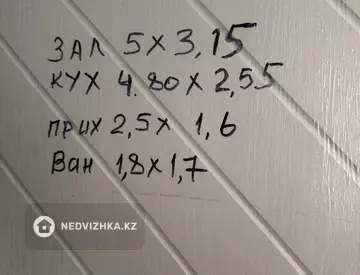 ЗАЛ 5 х 3,15
КУХ 4.80 х 2,55
прих 2,5 х 1,6
Ван 1,8 х 1,7
NEDVIZHKA.KZ